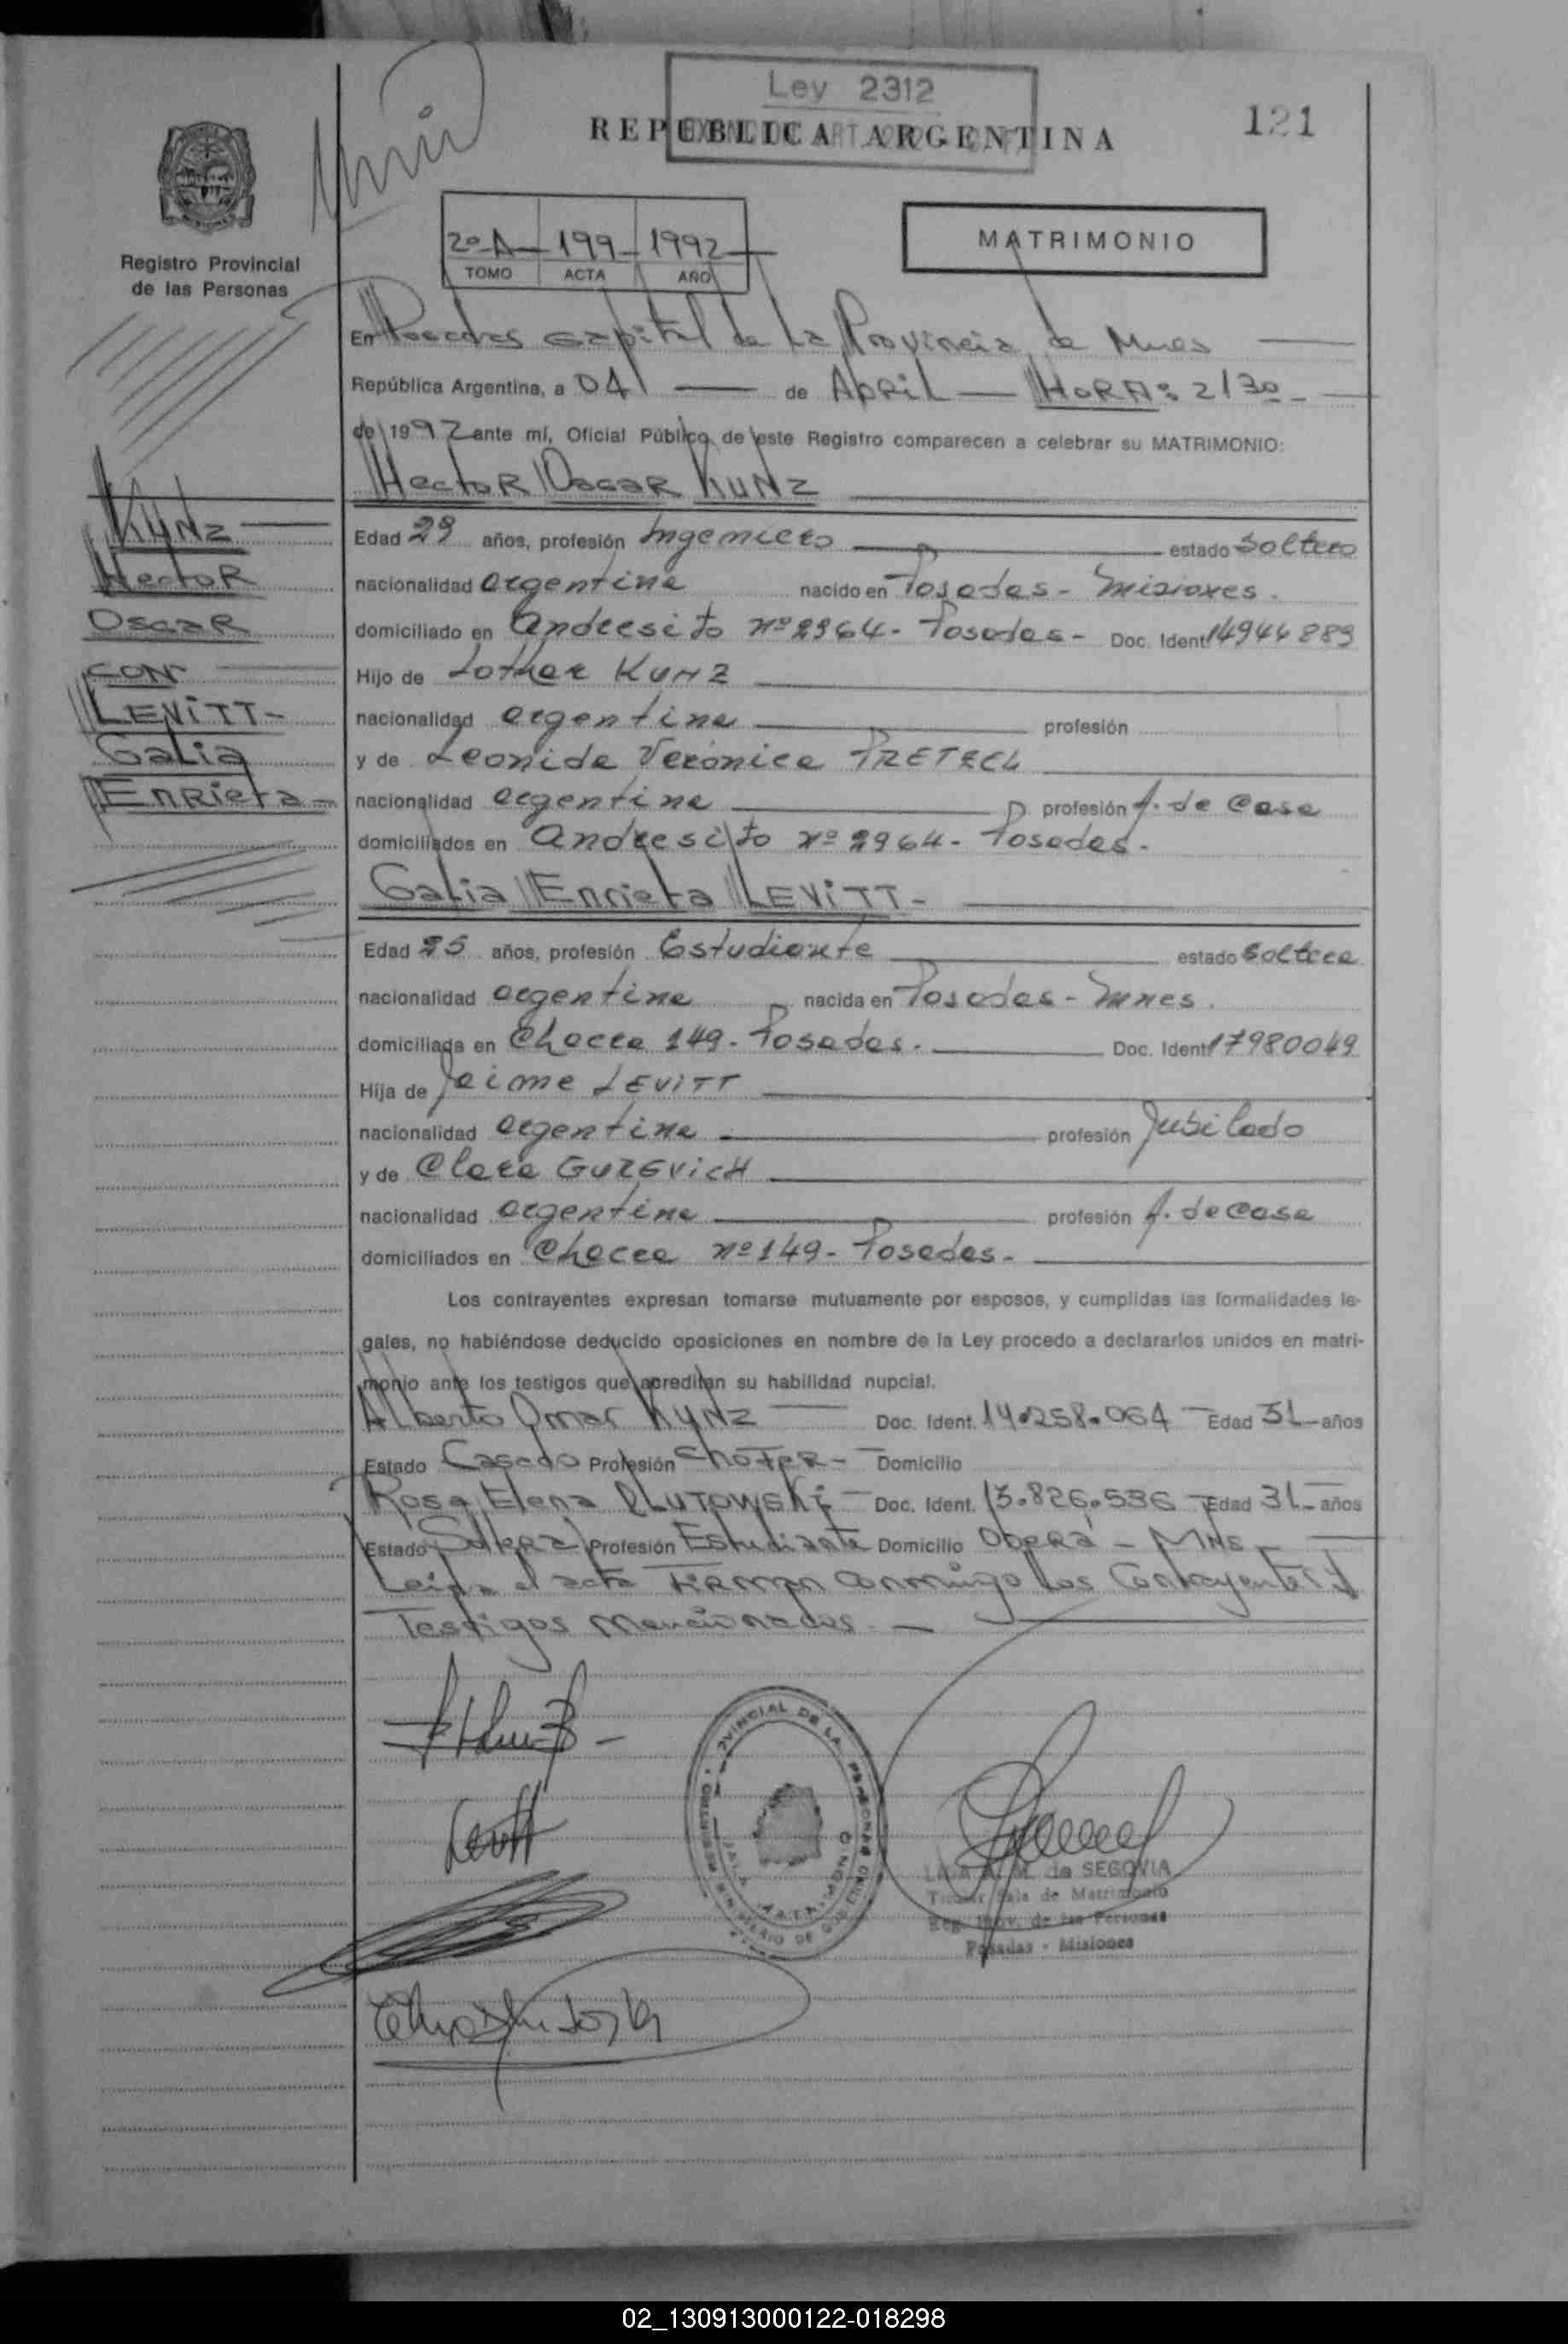 Ley 2312
REPUBLICA ARGENTINA
121
Registro Provincial
de las Personas
2º A - 199 - 1992
TOMO ACTA AÑO
MATRIMONIO
En Posadas Capital de La Provincia de Mnes
República Argentina, a 04 de April HORA: 2130
de 1992 ante mí, Oficial Público de este Registro comparecen a celebrar su MATRIMONIO:
Hector Oscar KUNZ
KUNZ
Hector
Oscar
CON
LEVITT-
Galia
Enrieta-
Edad 29 años, profesión Ingeniero estado Soltero
nacionalidad argentina nacido en Posadas - Misiones.
domiciliado en Andresito nº 2964 - Posadas - Doc. Ident. 14944889
Hijo de Lothar KUNZ
nacionalidad argentina profesión
y de Leonida Verónica
nacionalidad argentina profesión A. de Casa
domiciliados en Andresito nº 2964 - Posadas.
Galia Enrieta LEVITT-
Edad 25 años, profesión Estudiante estado Soltera
nacionalidad argentina nacida en Posadas - Mnes.
domiciliada en Chacra 149 - Posadas. Doc. Ident. 17980049
Hija de Jaime LEVITT
nacionalidad argentina profesión Jubilado
y de Clara GUREVICH
nacionalidad argentina profesión A. de Casa
domiciliados en Chacra nº 149 - Posadas-
Los contrayentes expresan tomarse mutuamente por esposos, y cumplidas las formalidades le-
gales, no habiéndose deducido oposiciones en nombre de la Ley procedo a declararlos unidos en matri-
monio ante los testigos que acreditan su habilidad nupcial.
Alberto Omar KUNZ Doc. Ident. 14.258.064 Edad 31 años
Estado Casado Profesión Chofer - Domicilio
Rosa Elena PLUTOWSKI Doc. Ident. 13.826.536 Edad 31 años
Estado Soltera Profesión Estudiante Domicilio Oberá - MNES
Leida el acta Firman conmigo los Contrayentes y
Testigos Mencionados.
Levitt
de SEGOVIA
Titular Sala de Matrimonio
Reg. Prov. de las Personas
Posadas - Misiones
02_130913000122-018298